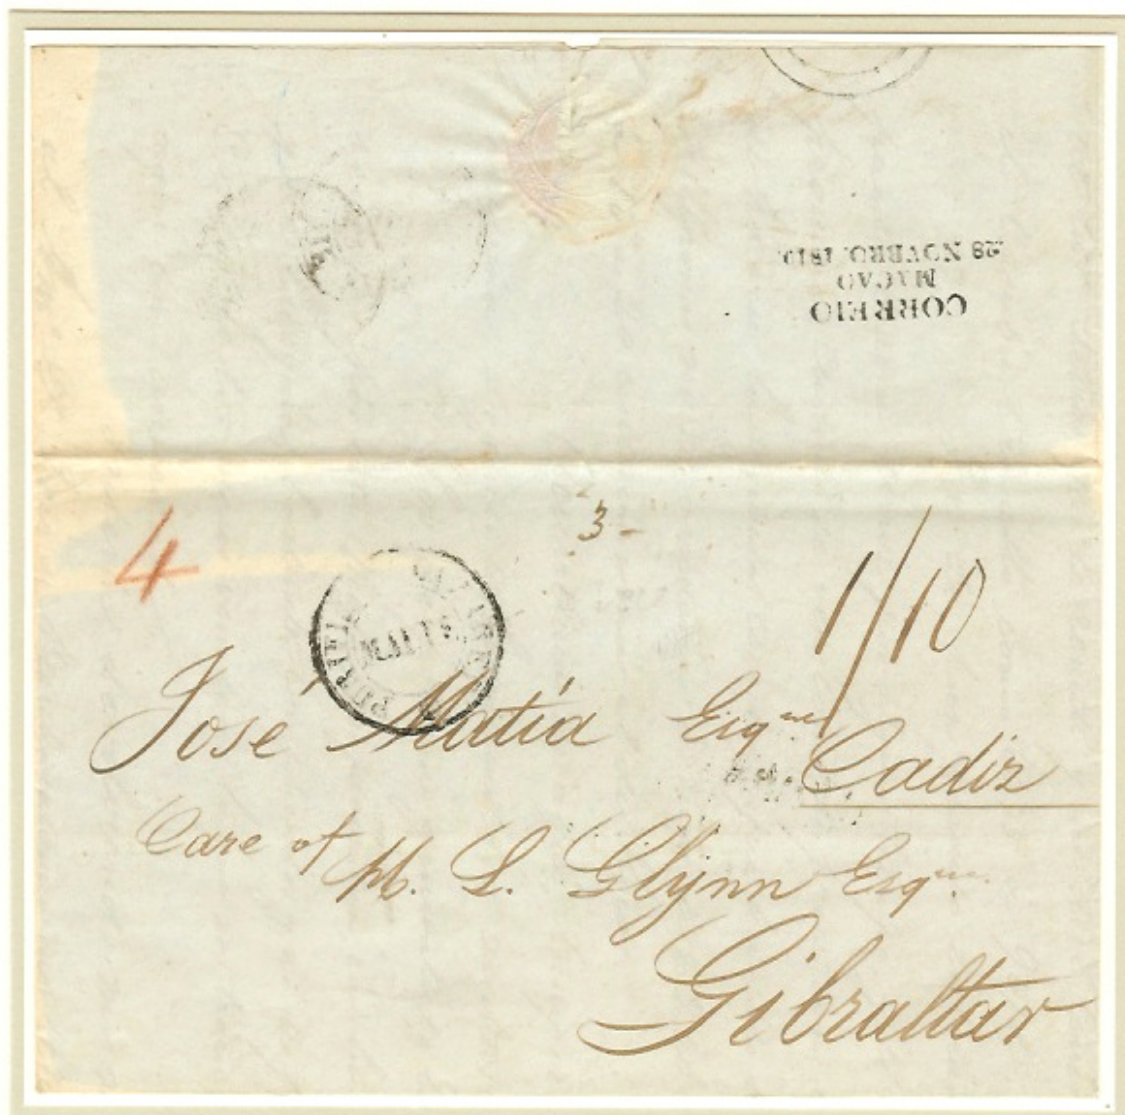 CORREIO
MACAO
28 NOVBRO. 181
4
3-
1/10
José Matía Esqre
Cadiz
Care of H. L. Glynn Esqre
Gibraltar